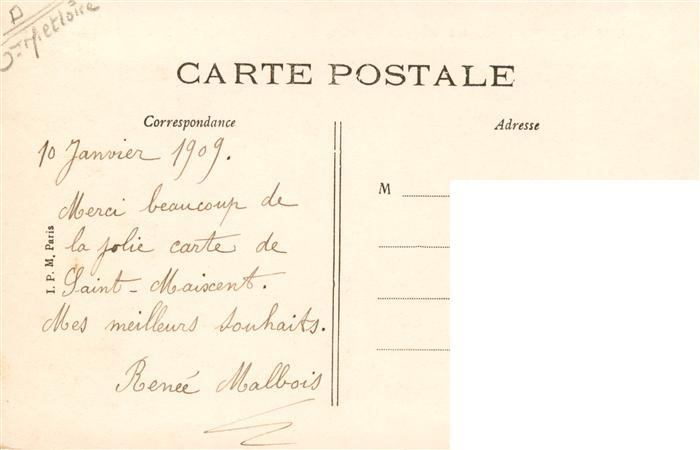 D
CARTE POSTALE
Correspondance
Adresse
10 Janvier 1909.
Merci beaucoup de
la jolie carte de
Saint-Maixent.
Mes meilleurs souhaits.
Renée Malbois
I. P. M. Paris
M